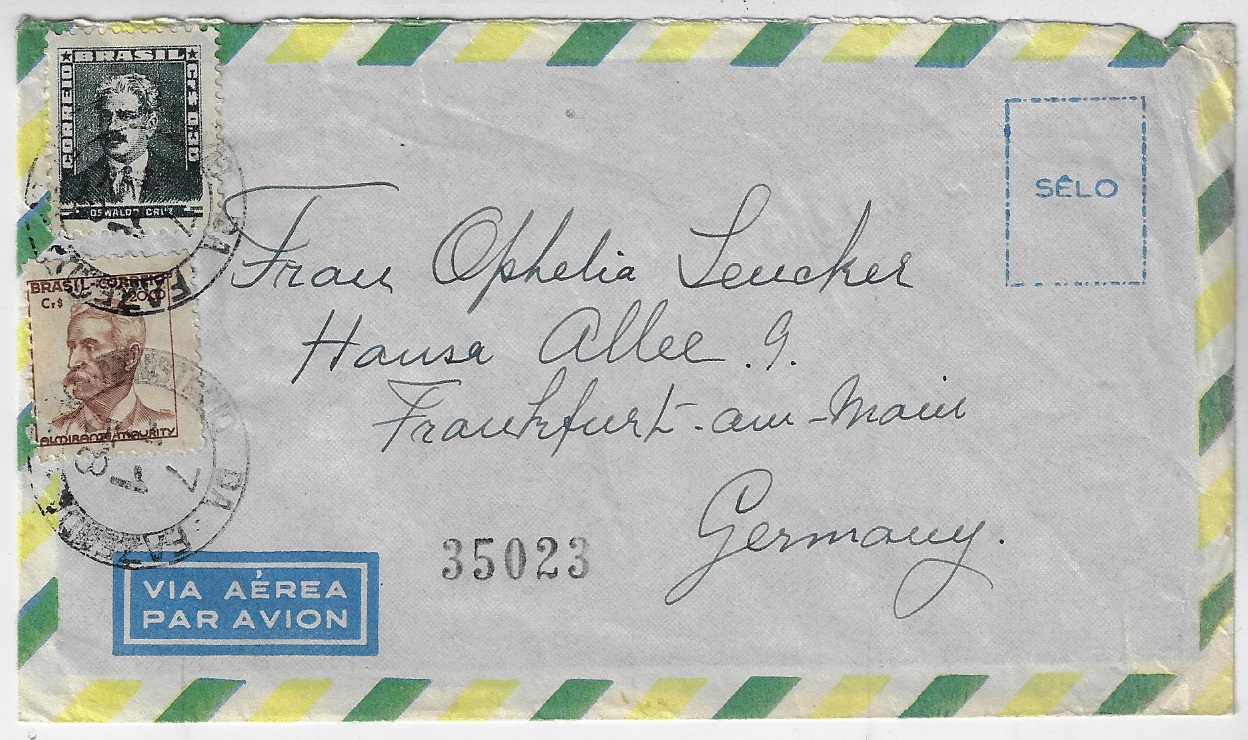 BRASIL
CORREIO
OSWALDO CRUZ
SÊLO
BRASIL-CORREIO
Cr$ 20,00
ALMIRANTE MAURITY
DA FAZENDA
DA FAZENDA
Frau Ophelia Seucker
Hansa Allee 9.
Frankfurt-am-Main
Germany.
35023
VIA AÉREA
PAR AVION